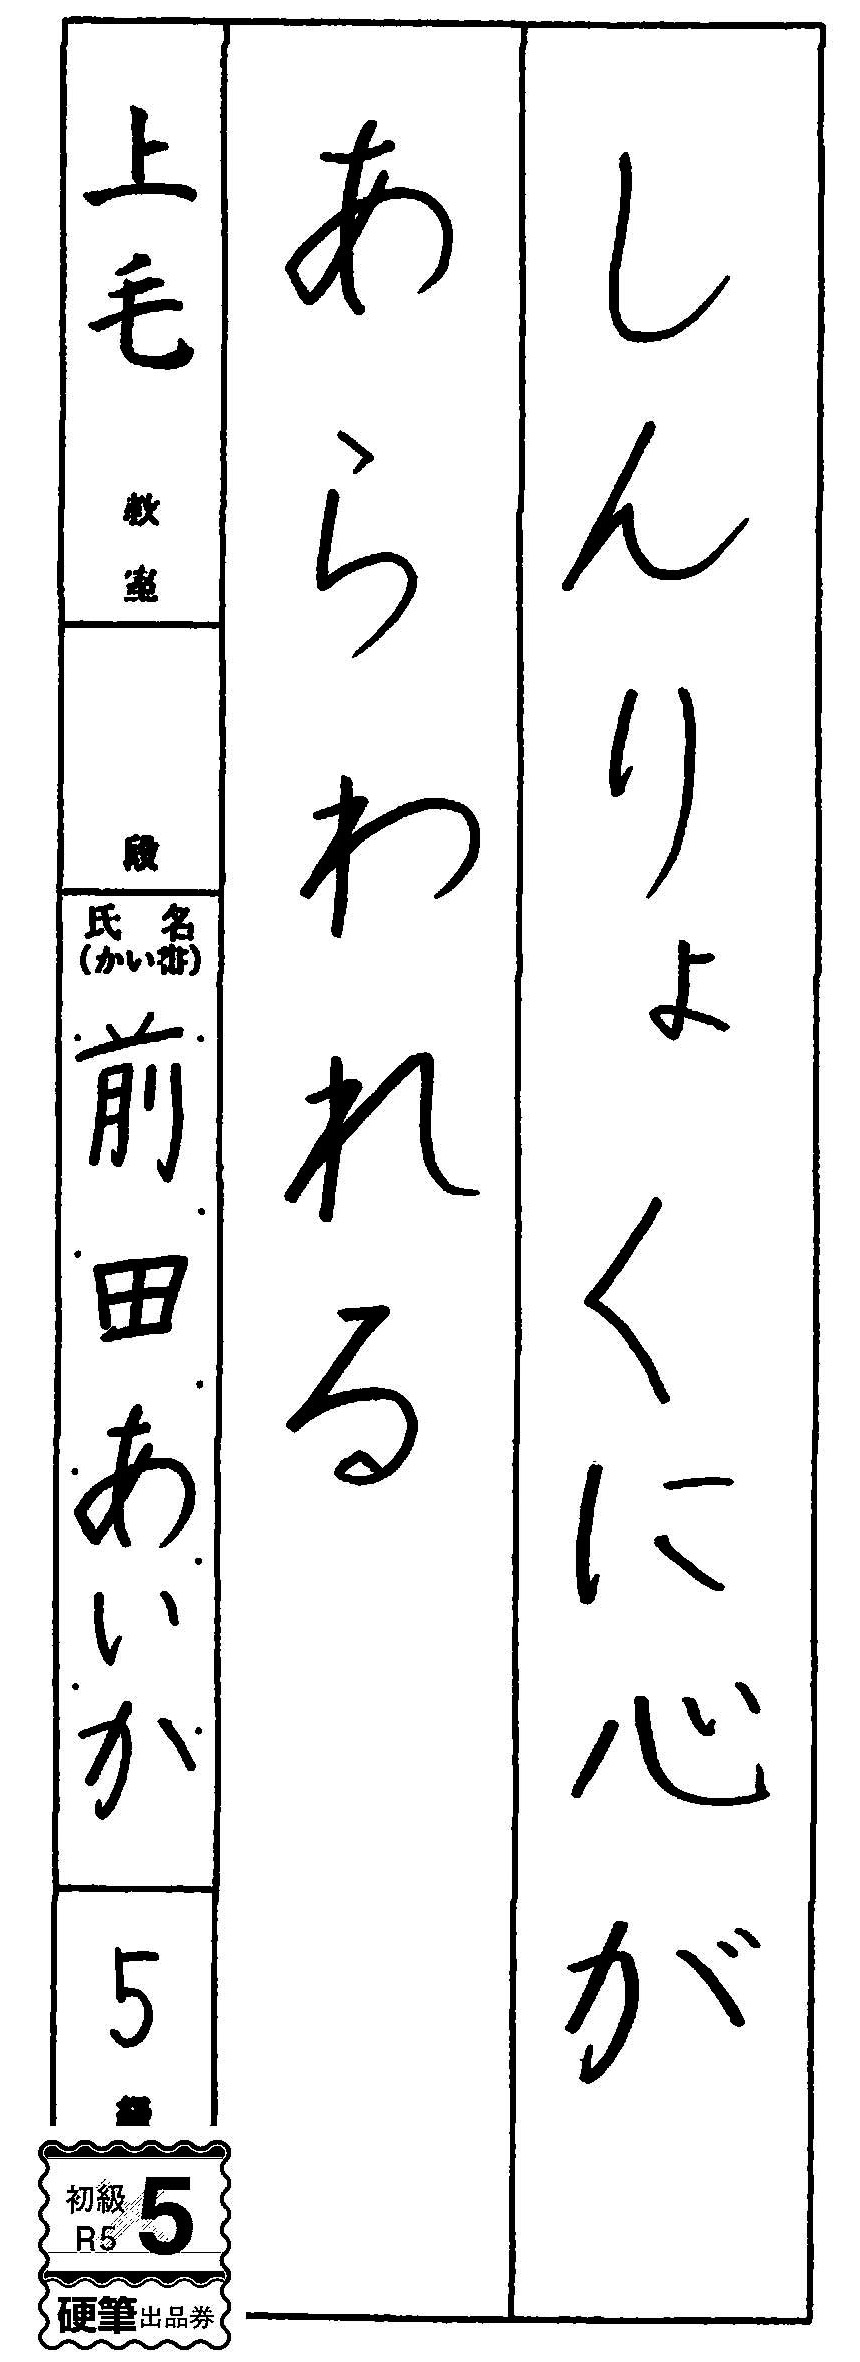 しんりょくに心が
あらわれる
上毛教室
段
氏名
(かい書)
前田あいか
5級
初級
R5
5
硬筆出品券